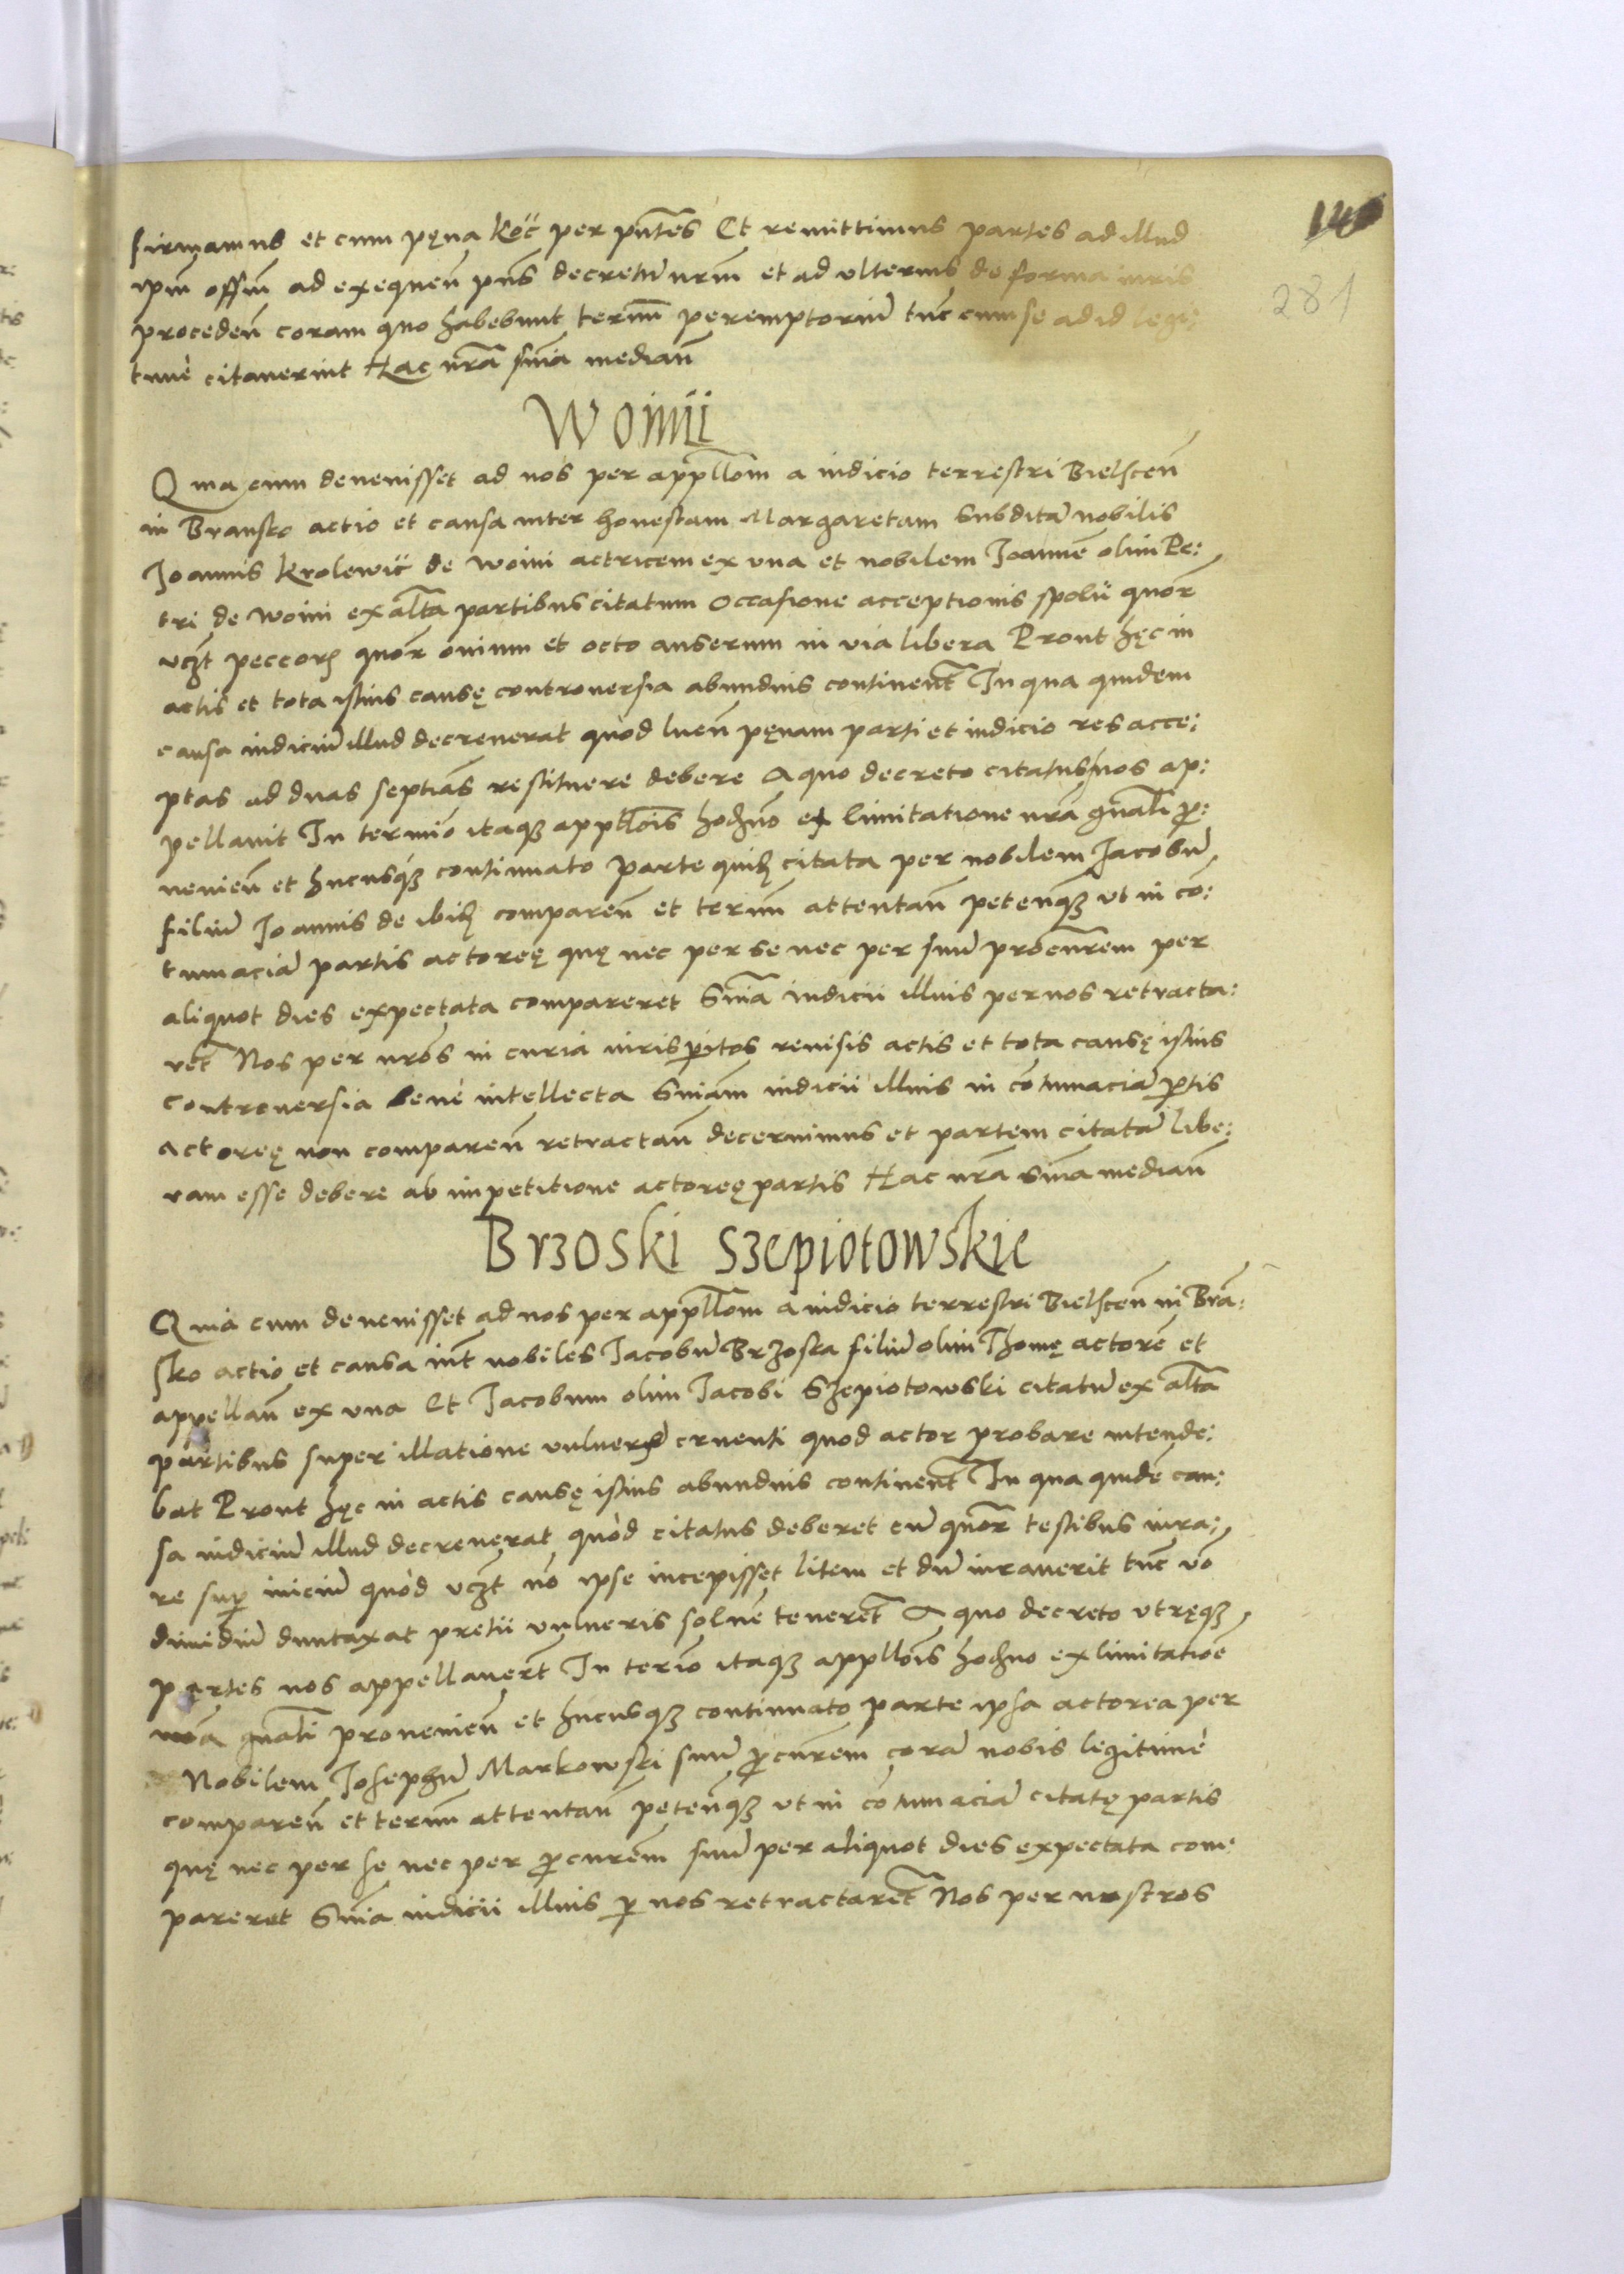 firmamus et cum pęna Koc per pñtes Et remittimus partes ad illud
ipm offm ad exequeñ pñs decretũ nrm et ad vlterius de forma iuris
procedeñ coram quo habebunt termm peremptoriũ tũc cum se ad id legi:
time citauerint Hac nra sñia mediañ
Woinii
Quia cum deuenisset ad nos per appllom a iudicio terrestri Bielsceñ
in Bransko actio et causa inter honestam Margaretam Subditã nobilis
Joannis Krolewic de Woini actricem ex vna et nobilem Joannẽ olim Pe:
tri de Woini ex alta partibus citatum Occasione acceptionis spolii quor
vczt peccorũ quor ouium et octo anserum in via libera Prout hęc in
actis et tota istius causę controuersia abundius continent In qua quidem
causa iudiciũ illud decreuerat quòd lueñ pęnam parti et iudicio res acce:
ptas ad duas septias restituere debere A quo decreto citatus nos ap:
pellauit In termio itaqʒ appllois hodño ex limitatione nra gnali ꝓ:
uenieñ et hucusqʒ continuato parte quidʒ citata per nobilem Jacobũ
filiũ Joannis de ibidʒ compareñ et termm attentañ peteñqʒ vt in cõ:
tumaciã partis actoreę quę nec per se nec per suũ procurem per
aliquot dies expectata compareret Sñia iudicii illius per nos retracta:
ret Nos per nros in curia iurisperitos reuisis actis et tota causę istius
controuersia bene intellecta Sniam iudicii illius in cõtumaciã ꝑtis
actoreę non compareñ retractañ decernimus et partem citatã libe:
ram esse debere ab impetitione actoreę partis Hac nra sñia mediañ
Brzoski Szepiotowskie
Quia cum deuenisset ad nos per appllom a iudicio terrestri Bielsceñ in Brã:
sko actio et causa int nobiles Jacobũ Brzoska filiũ olim Thomę actorẽ et
appellañ ex vna Et Jacobum olim Jacobi Szepiotowski citatũ ex alta
partibus super illatione vulneris cruenti quod actor probare intende:
bat Prout hęc in actis causę istius abundius continent In qua quidẽ cau:
sa iudiciũ illud decreuerat quòd citatus deberet cũ quor testibus iura:
re suꝑ iniciũ quòd vczt nõ ipse incepisset litem et dũ iurauerit tũc vo
dimidiũ duntaxat pretii vulneris soluẽ teneret A quo decreto vtręqʒ
partes nos appellauert In terio itaqʒ appllois hodño ex limitatioẽ
nra gnali prouenieñ et hucusqʒ continuato parte ipsa actorea per
Nobilem Josephũ Markowski suũ ꝓcurem corã nobis legitimè
compareñ et termm attentañ peteñqʒ vt in cõtumaciã citatę partis
quę nec per se nec per ꝓcurem suũ per aliquot dies expectata com:
pareret Sñia iudicii illius ꝑ nos retractaret Nos per nostros
281